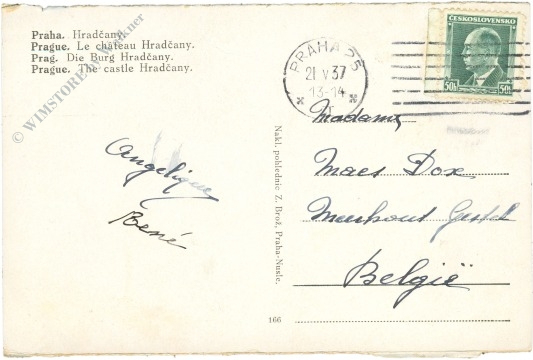 Praha. Hradčany.
Prague. Le château Hradčany.
Prag. Die Burg Hradčany.
Prague. The castle Hradčany.
© WIMSTORE by Winkner
Angelique
René
Nakl. pohlednic Z. Brož, Praha-Nusle.
166
PRAHA 25
21 V 37
13-14
ČESKOSLOVENSKO
50h 50h
Madame,
Maes Dox
Meerhout Gestel
België